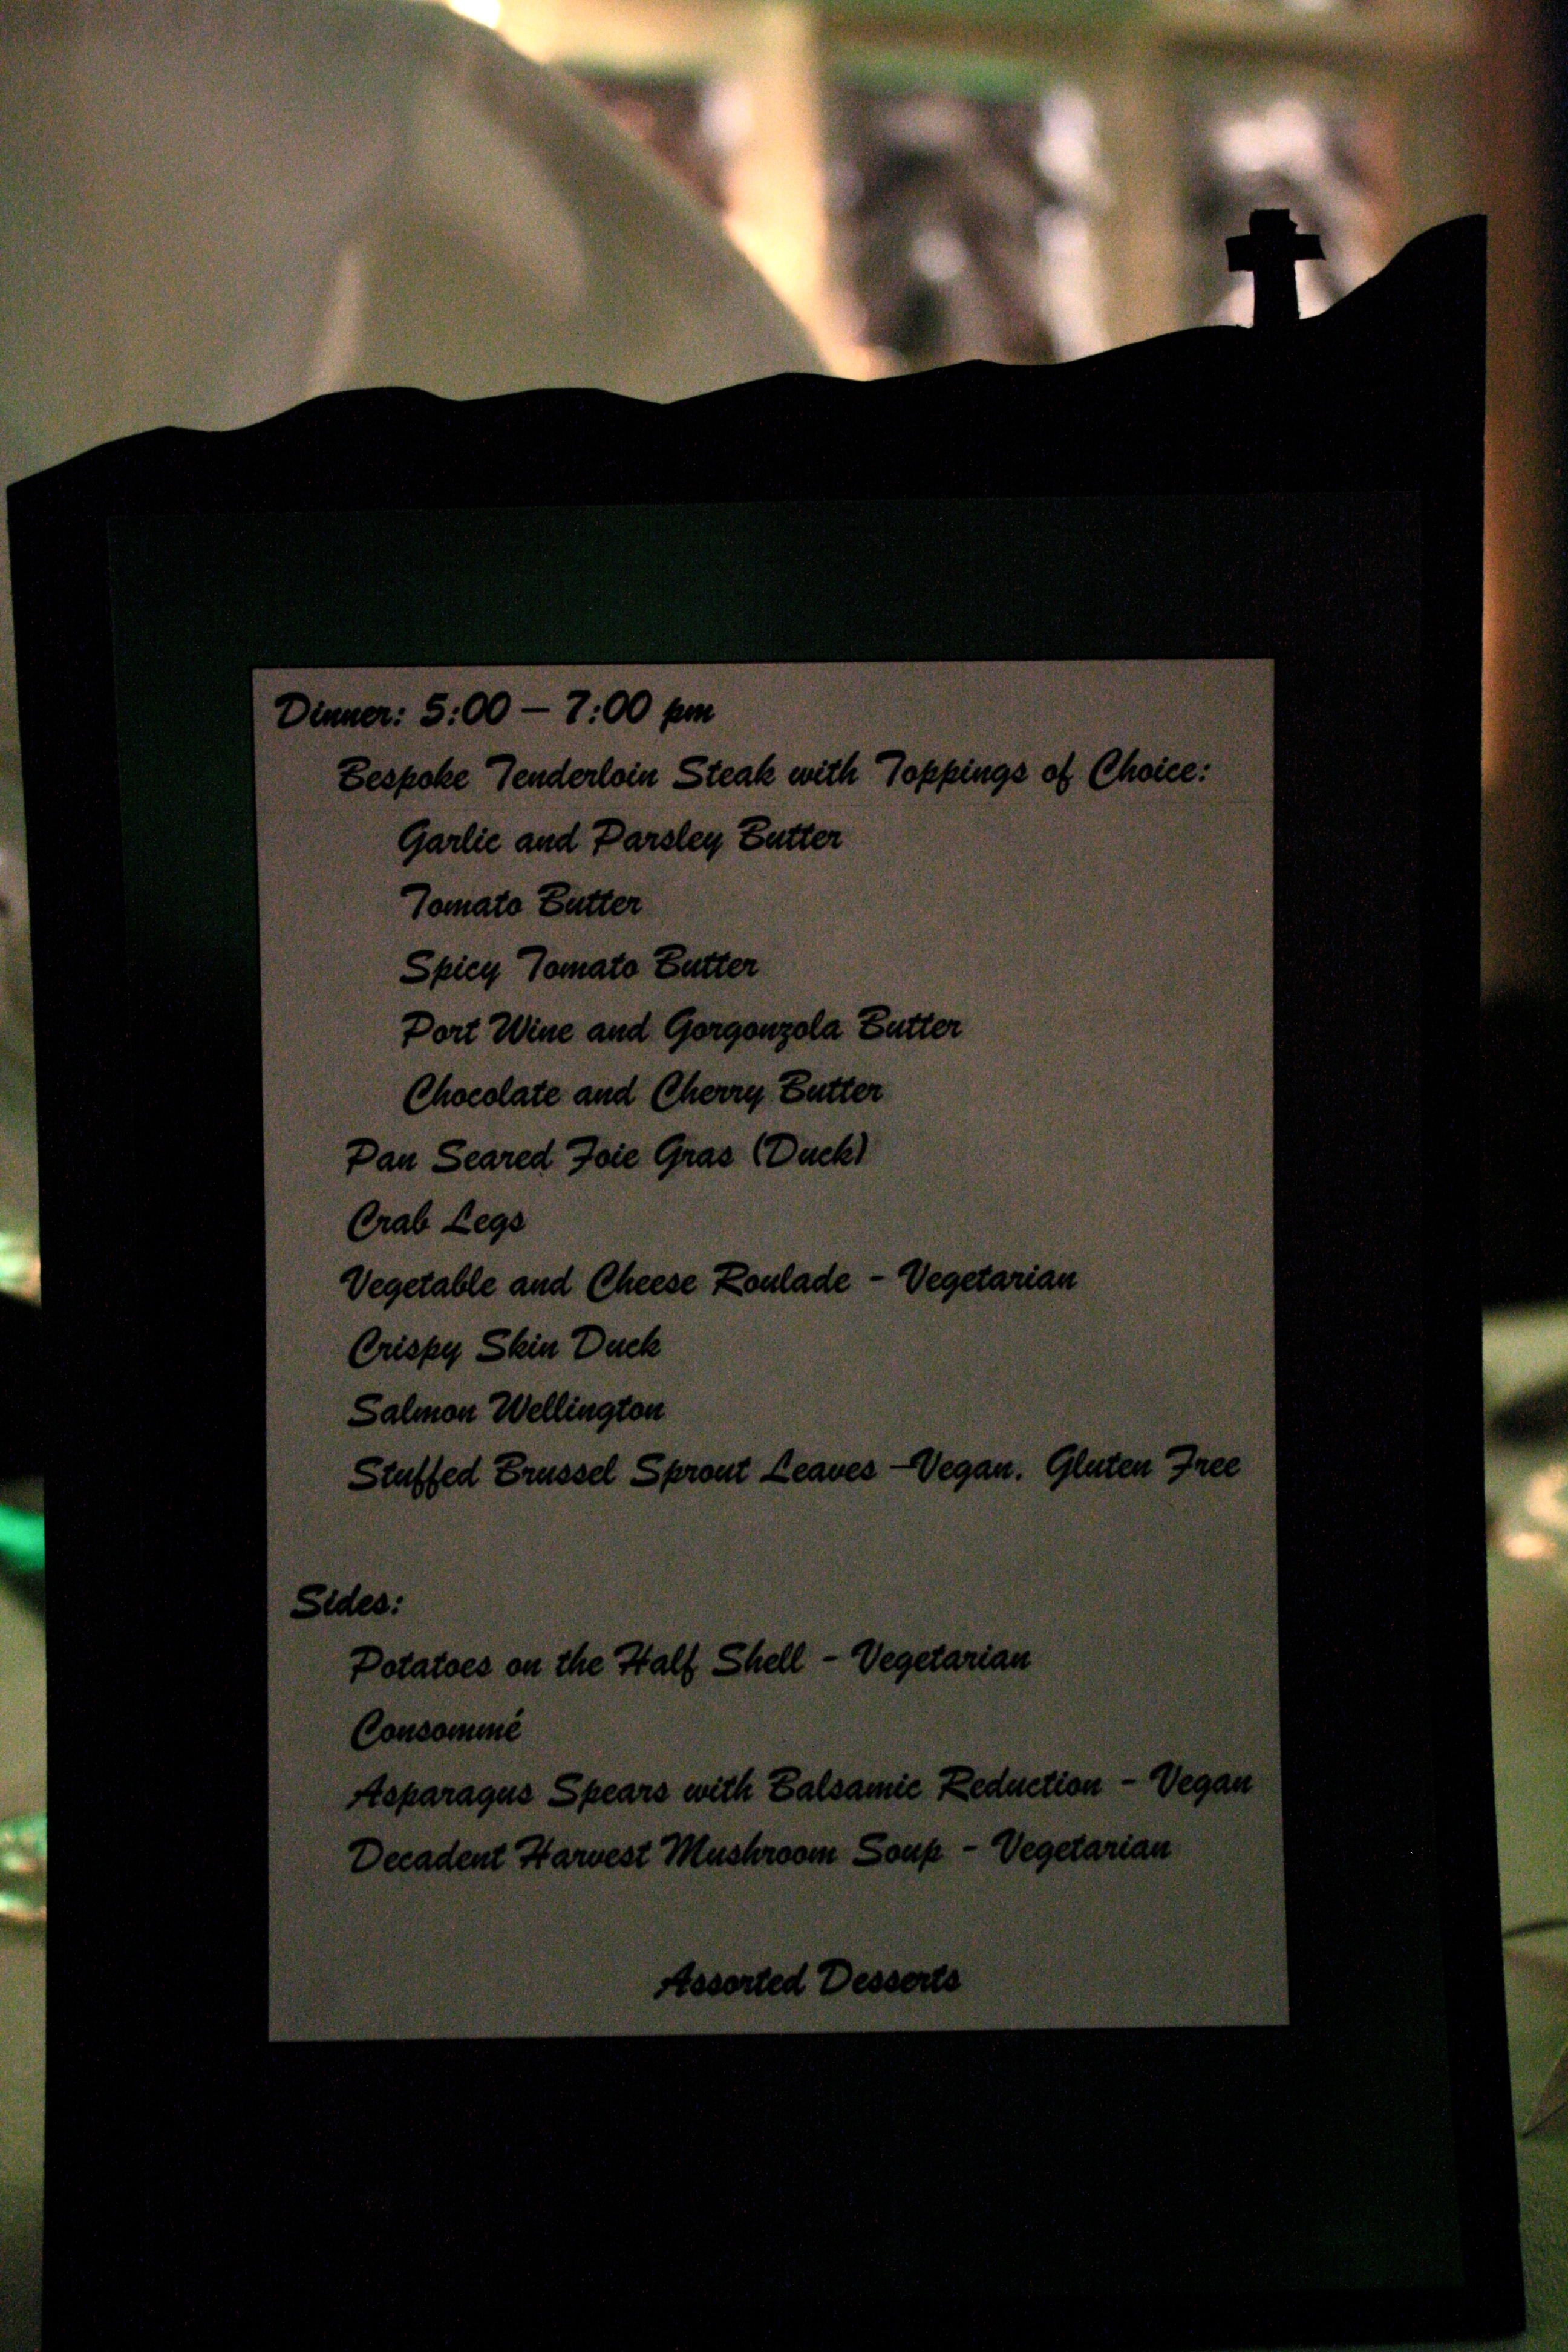 Dinner: 5:00 – 7:00 pm
Bespoke Tenderloin Steak with Toppings of Choice:
Garlic and Parsley Butter
Tomato Butter
Spicy Tomato Butter
Port Wine and Gorgonzola Butter
Chocolate and Cherry Butter
Pan Seared Foie Gras (Duck)
Crab Legs
Vegetable and Cheese Roulade - Vegetarian
Crispy Skin Duck
Salmon Wellington
Stuffed Brussel Sprout Leaves –Vegan. Gluten Free
Sides:
Potatoes on the Half Shell - Vegetarian
Consommé
Asparagus Spears with Balsamic Reduction - Vegan
Decadent Harvest Mushroom Soup - Vegetarian
Assorted Desserts